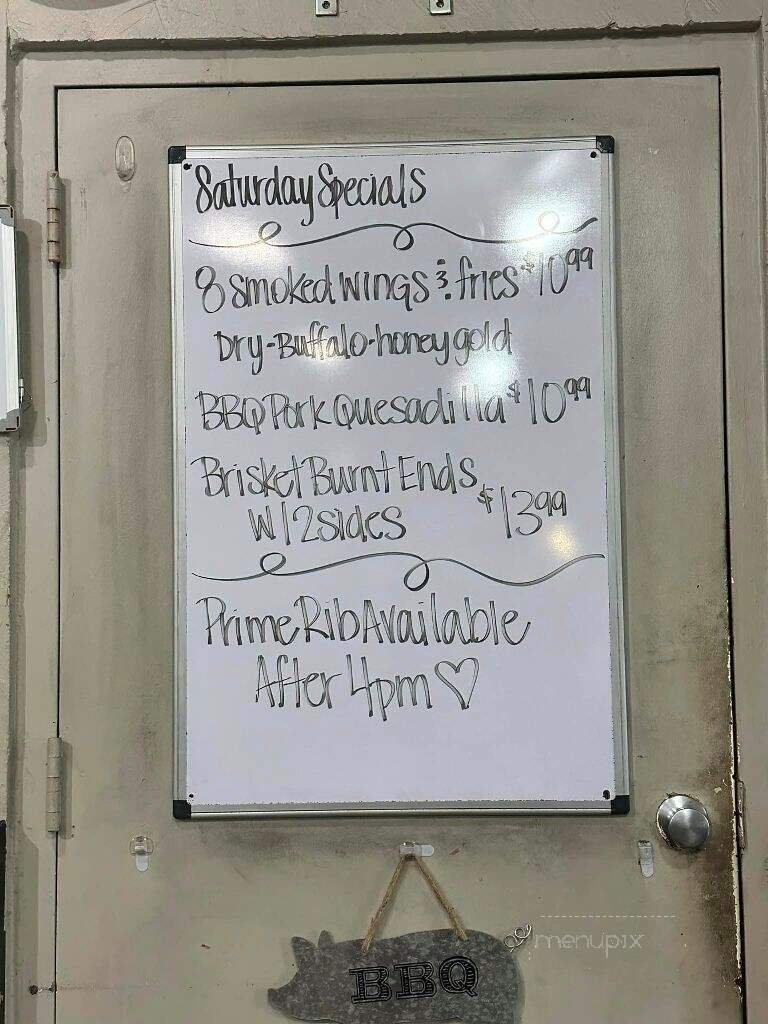 Saturday Specials
8 smoked wings & fries $10.99
Dry-Buffalo-honey gold
BBQ Pork Quesadilla $10.99
Brisket Burnt Ends
W/2sides $13.99
Prime Rib Available
After 4pm♡
BBQ
menupix